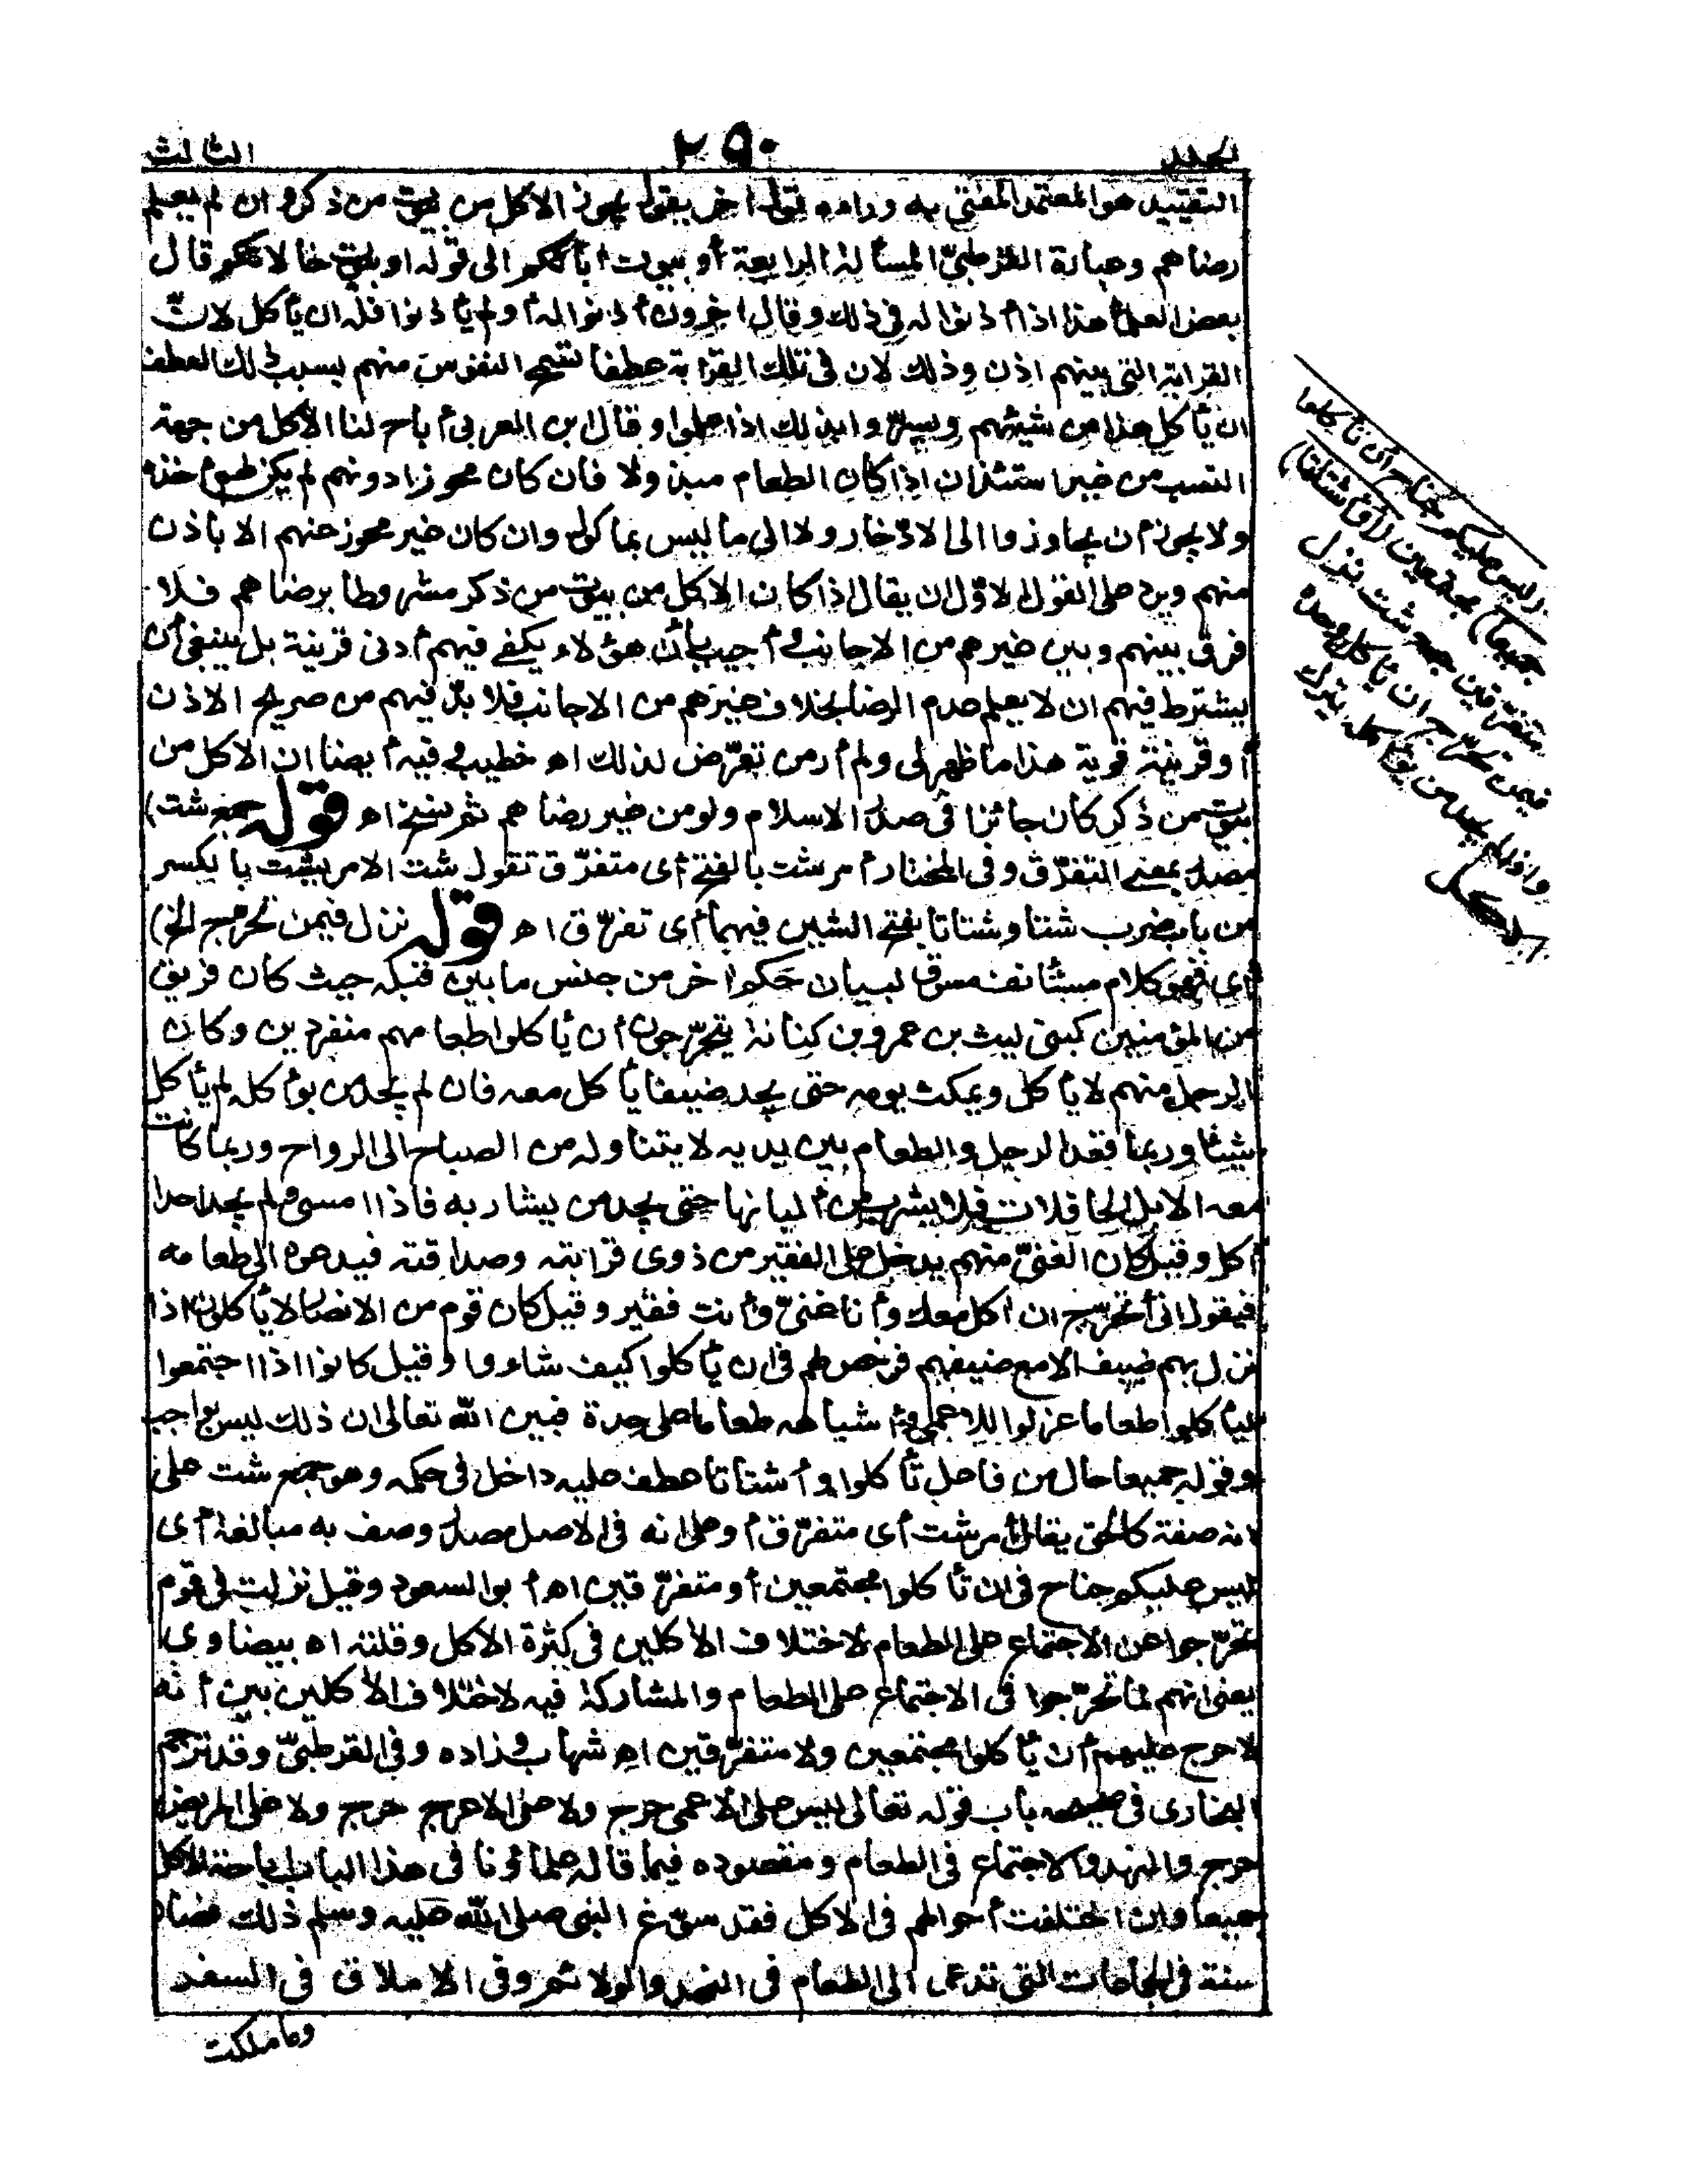 الجلد ٢٩٠ الثالث
التقييد هو المعتمد المفتى به ووراءه قول آخر يقول يجوز الاكل من بيوت من ذكر وان لم يعلم
رضاهم وعبارة القرطبيّ المسألة الرابعة أو بيوت آبائكم الى قوله او بيوت خالاتكم قال
بعض العلماء هذا اذا أذنوا له في ذلك وقال آخرون أذنوا له أولم يأذنوا فله ان يأكل لانّ
القرابة التى بينهم اذن وذلك لان في تلك القرابة عطفا تسمح النفوس منهم بسبب ذلك العطف
ان يأكل هذا من شيئهم ويسرّوا بذلك اذا علموا وقال ابن العربى أباح لنا الاكل من جهة
النسب من غير استئذان اذا كان الطعام مبذولا فان كان محوزا دونهم لم يكن لهم أخذه
ولا يجوز أن يجاوزوا الى الادّخار ولا الى ما ليس بمأكول وان كان غير محوز عنهم الا باذن
منهم ويرد على القول الاوّل ان يقال اذا كان الاكل من بيوت من ذكر مشروطا برضاهم فلا
فرق بينهم وبين غيرهم من الاجانب وأجيب بأن هؤلاء يكفى فيهم أدنى قرينة بل ينبغى أن
يشترط فيهم ان لا يعلم عدم الرضا بخلاف غيرهم من الاجانب فلا بدّ فيهم من صريح الاذن
أو قرينة قوية هذا ما ظهر لى ولم أر من تعرّض لذلك اه خطيب وفيه أيضا ان الاكل من
بيوت من ذكر كان جائزا في صدر الاسلام ولو من غير رضاهم ثم نسخ اه قوله جمع شت)
مصدر بمعنى التفرّق وفى المختار أمر شت بالفتح أى متفرّق تقول شت الامر يشت بالكسر
من باب ضرب شتا وشتاتا بفتح الشين فيهما أى تفرّق اه قوله نزل فيمن تحرّج الخ)
أى فهو كلام مستأنف مسوق لبيان حكم آخر من جنس ما بين قبله حيث كان فريق
من المؤمنين كبنى ليث بن عمرو بن كنانة يتحرّجون أن يأكلوا طعامهم منفردين وكان
الرجل منهم لا يأكل ويمكث يومه حتى يجد ضيفا يأكل معه فان لم يجد من يؤاكله لم يأكل
شيئا وربما قعد الرجل والطعام بين يديه لا يتناوله من الصباح الى الرواح وربما كانت
معه الابل الحافلات فلا يشرب من ألبانها حتى يجد من يشاربه فاذا امسى ولم يجد احدا
أكل وقيل كان الغنىّ منهم يدخل على الفقير من ذوى قرابته وصداقته فيدعوه الى طعامه
فيقول انى أتحرّج ان آكل معك وأنا غنىّ وأنت فقير وقيل كان قوم من الانصار لا يأكلون اذا
نزل بهم ضيف الا مع ضيفهم فرخص لهم في ان يأكلوا كيف شاءوا وقيل كانوا اذا اجتمعوا
ليأكلوا طعاما عزلوا للاعمى وأشباهه طعاما على حدة فبين الله تعالى ان ذلك ليس بواجب
وقوله جميعا حال من فاعل تأكلوا وأشتاتا عطف عليه داخل في حكمه وهو جمع شت على
انه صفة كالحق يقال أمر شت أى متفرّق أو على انه في الاصل مصدر وصف به مبالغة أى
ليس عليكم جناح في ان تأكلوا مجتمعين أو متفرّقين اه أبو السعود وقيل نزلت في قوم
تحرّجوا عن الاجتماع على الطعام لاختلاف الآكلين في كثرة الاكل وقلته اه بيضاوى
يعنى انهم لما تحرّجوا في الاجتماع على الطعام والمشاركة فيه لاختلاف الآكلين بين أنه
لا حرج عليهم أن يأكلوا مجتمعين ولا متفرّقين اه شهاب وزاده وفى القرطبىّ وقد ترجم
البخارى في صحيحه باب قوله تعالى ليس على الاعمى حرج ولا على الاعرج حرج ولا على المريض
حرج والنهد والاجتماع في الطعام ومقصوده فيما قاله علماؤنا في هذا الباب اباحة الاكل
جميعا وان اختلفت أحوالهم في الاكل فقد سوّغ النبى صلى الله عليه وسلم ذلك فصار
سنة في الجماعات التى تدعى الى الطعام في النهد والولائم وفى الاملاق في السفر
وما ملكت
(ليس عليكم جناح أن تأكلوا
جميعا) مجتمعين (أو أشتاتا)
متفرقين جمع شت نزل
فيمن تحرّج ان يأكل وحده
واذا لم يجد من يؤاكله يترك
الاكل